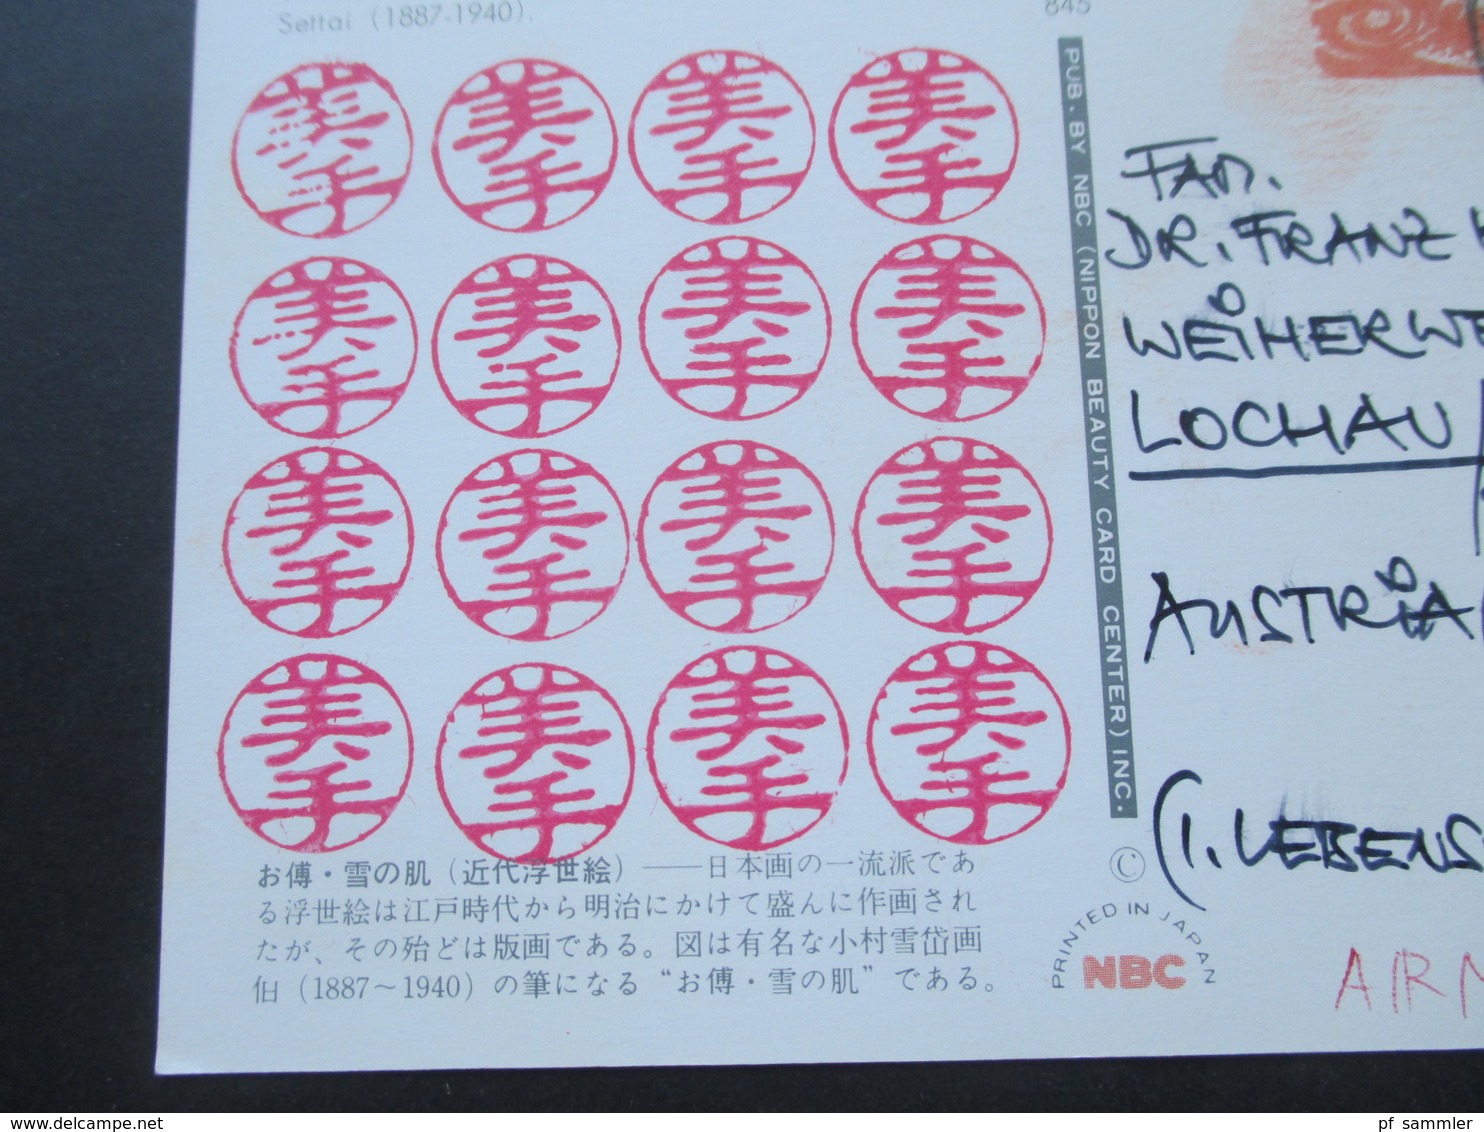 Settai (1887-1940).
845
美手 美手 美手 美手
美手 美手 美手 美手
美手 美手 美手 美手
美手 美手 美手 美手
お傅・雪の肌（近代浮世絵）——日本画の一流派であ
る浮世絵は江戸時代から明治にかけて盛んに作画され
たが、その殆どは版画である。図は有名な小村雪岱画
伯（1887～1940）の筆になる“お傅・雪の肌”である。
PUB. BY NBC (NIPPON BEAUTY CARD CENTER) INC.
©
PRINTED IN JAPAN
NBC
FAM.
DR. FRANZ
WEIHERWE
LOCHAU
AUSTRIA
(1. LEBENS
AIRM
www.delcampe.net
pf_sammler